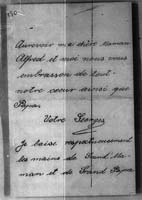 Aurevoir ma chère maman
Alfred et moi nous vous
embrassons de tout
notre coeur ainsi que
Papa.
Votre Georges
Je baise respectueusement
les mains de Grand Ma-
man et de Grand Papa